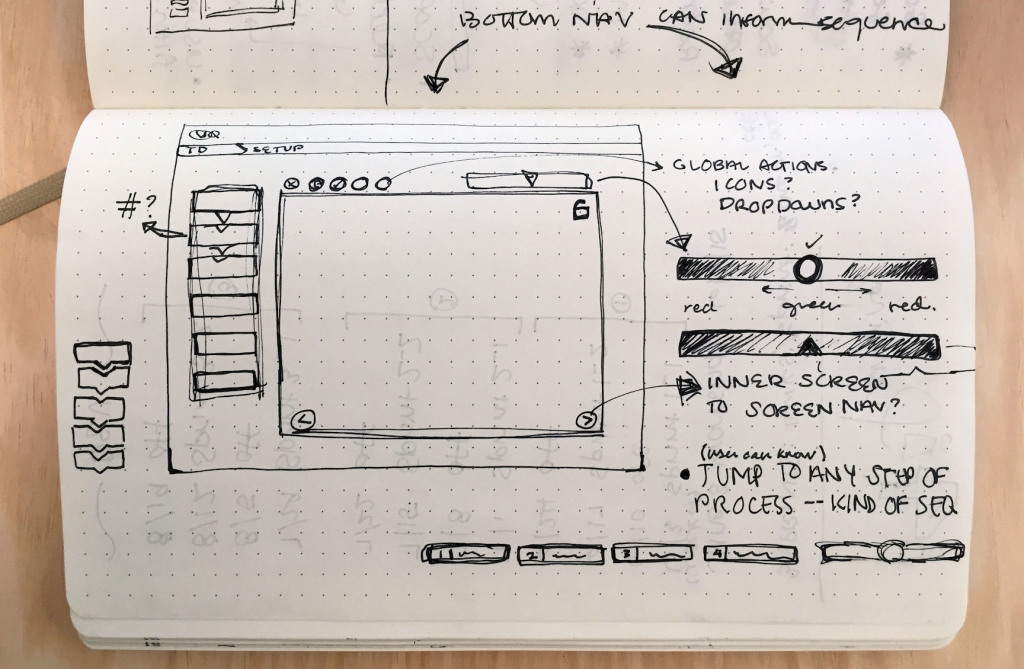 BOTTOM NAV CAN inform sequence
TO > SETUP
GLOBAL ACTIONS
ICONS?
DROPDOWNS?
#?
6
red green red.
INNER SCREEN
TO SCREEN NAV?
(user can know)
• JUMP TO ANY STEP OF
PROCESS -- KIND OF SEQ
1 2 3 4